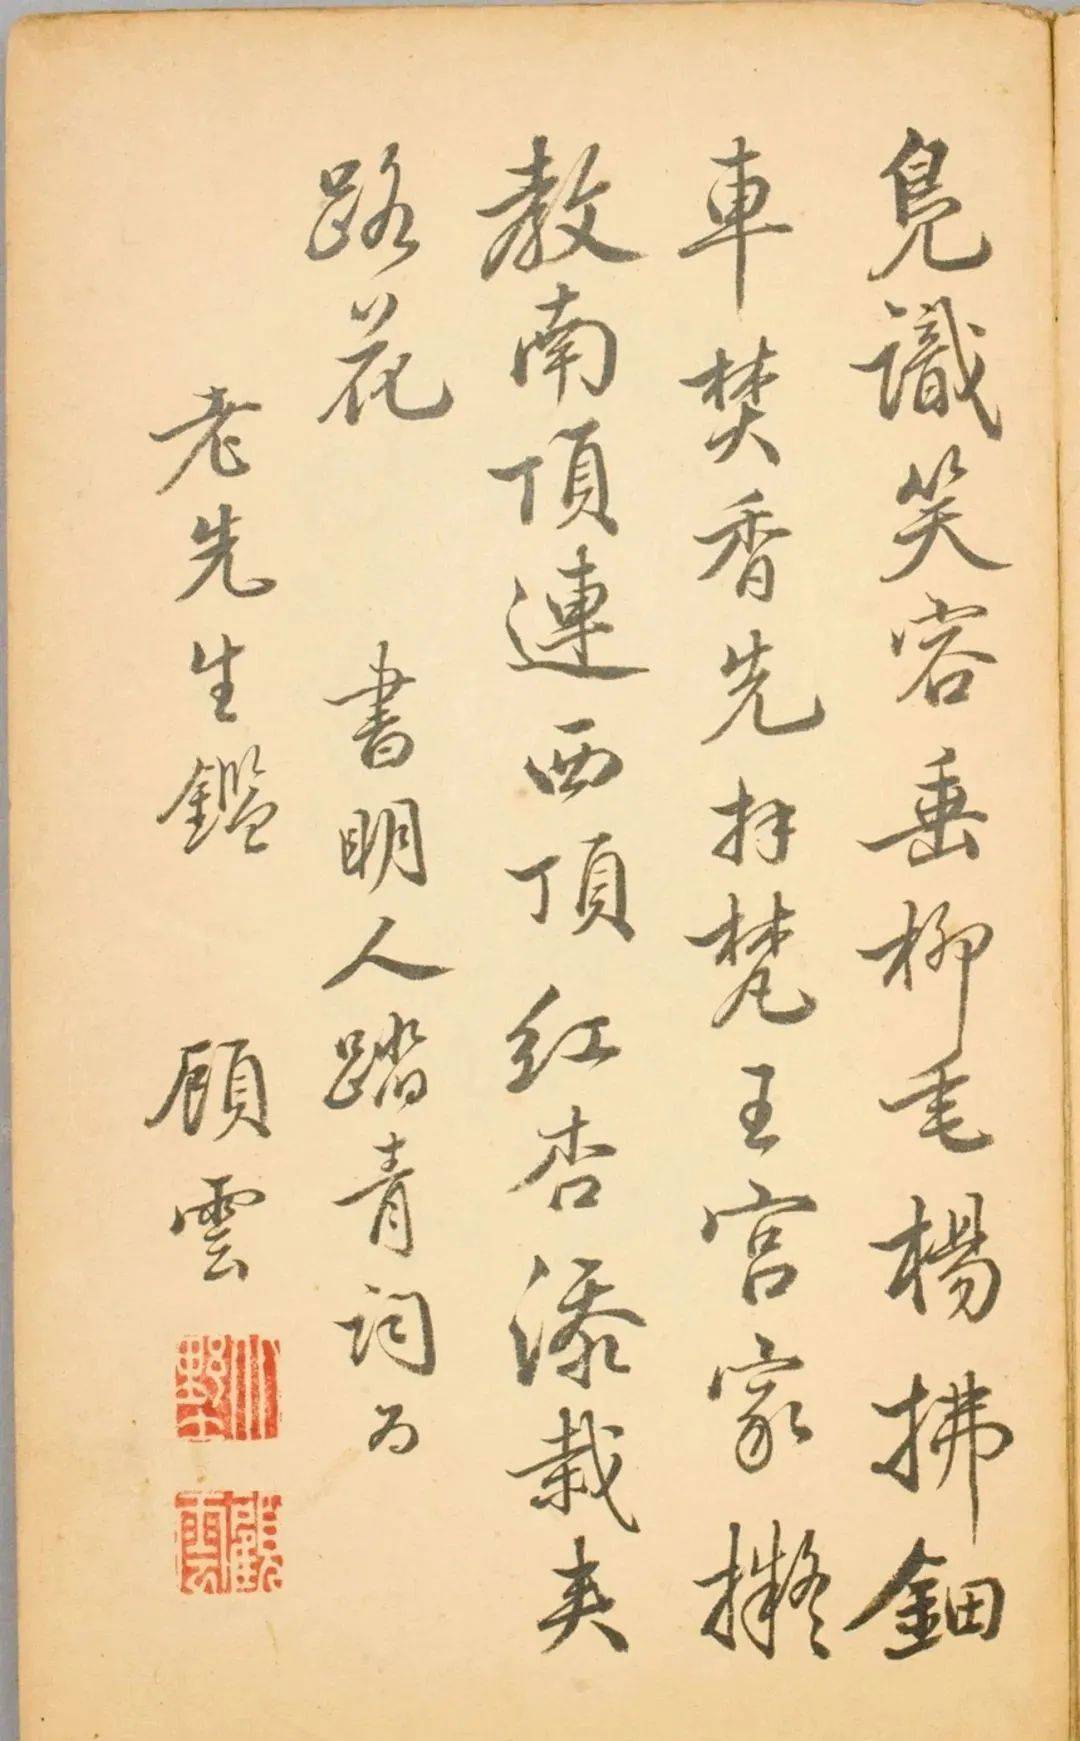 識笑容垂柳毛楊拂鈿
車焚香先拜梵王宮家擬
教南頂連西頂紅杏添栽夾
路花 書明人踏青詞為
老先生鑑 顧雲
顧雲